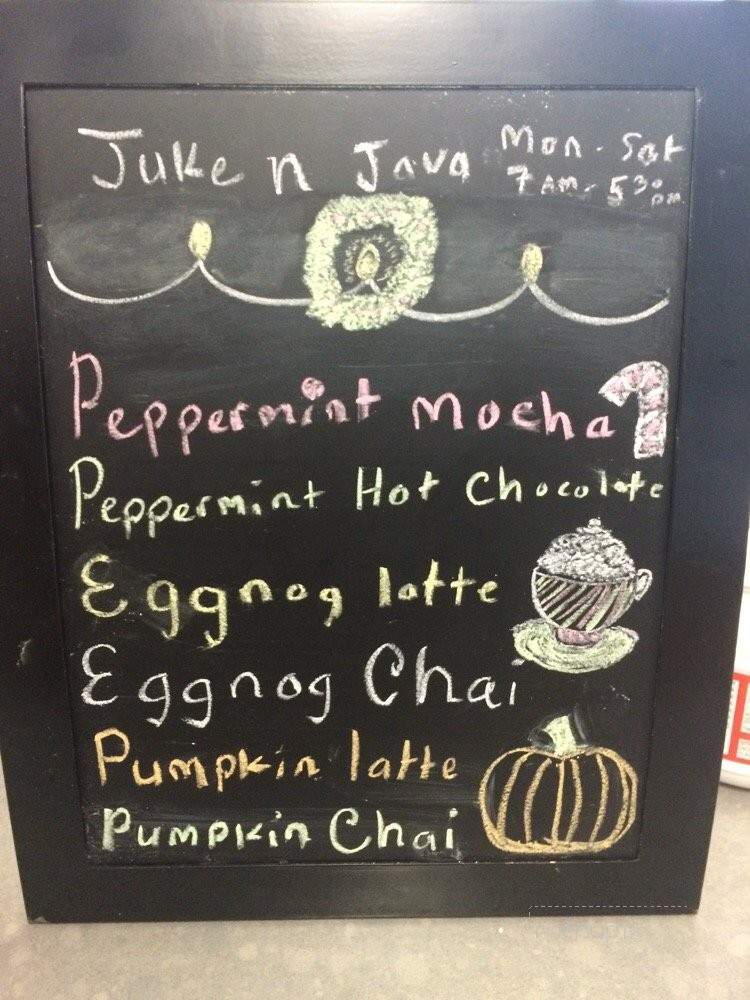 Juke n Java
Mon - Sat
7 AM - 5 30 pm
Peppermint Mocha
Peppermint Hot Chocolate
Eggnog latte
Eggnog Chai
Pumpkin latte
Pumpkin Chai